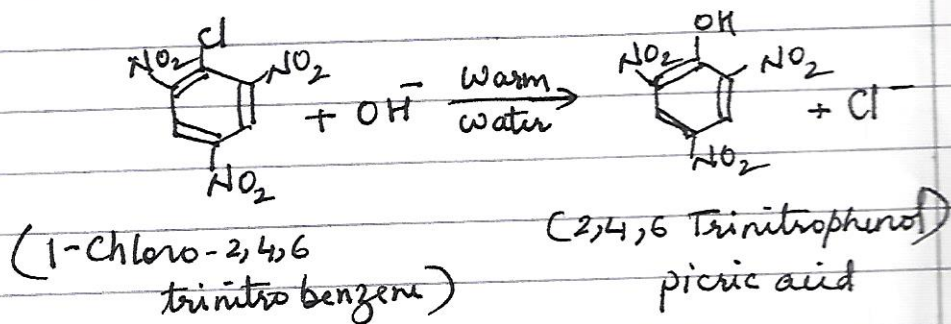 Cl
NO2 NO2 + OH⁻ warm water → 
NO2
OH
NO2 NO2 + Cl⁻
NO2
(1-Chloro-2,4,6
trinitro benzene)
(2,4,6 Trinitrophenol)
picric acid